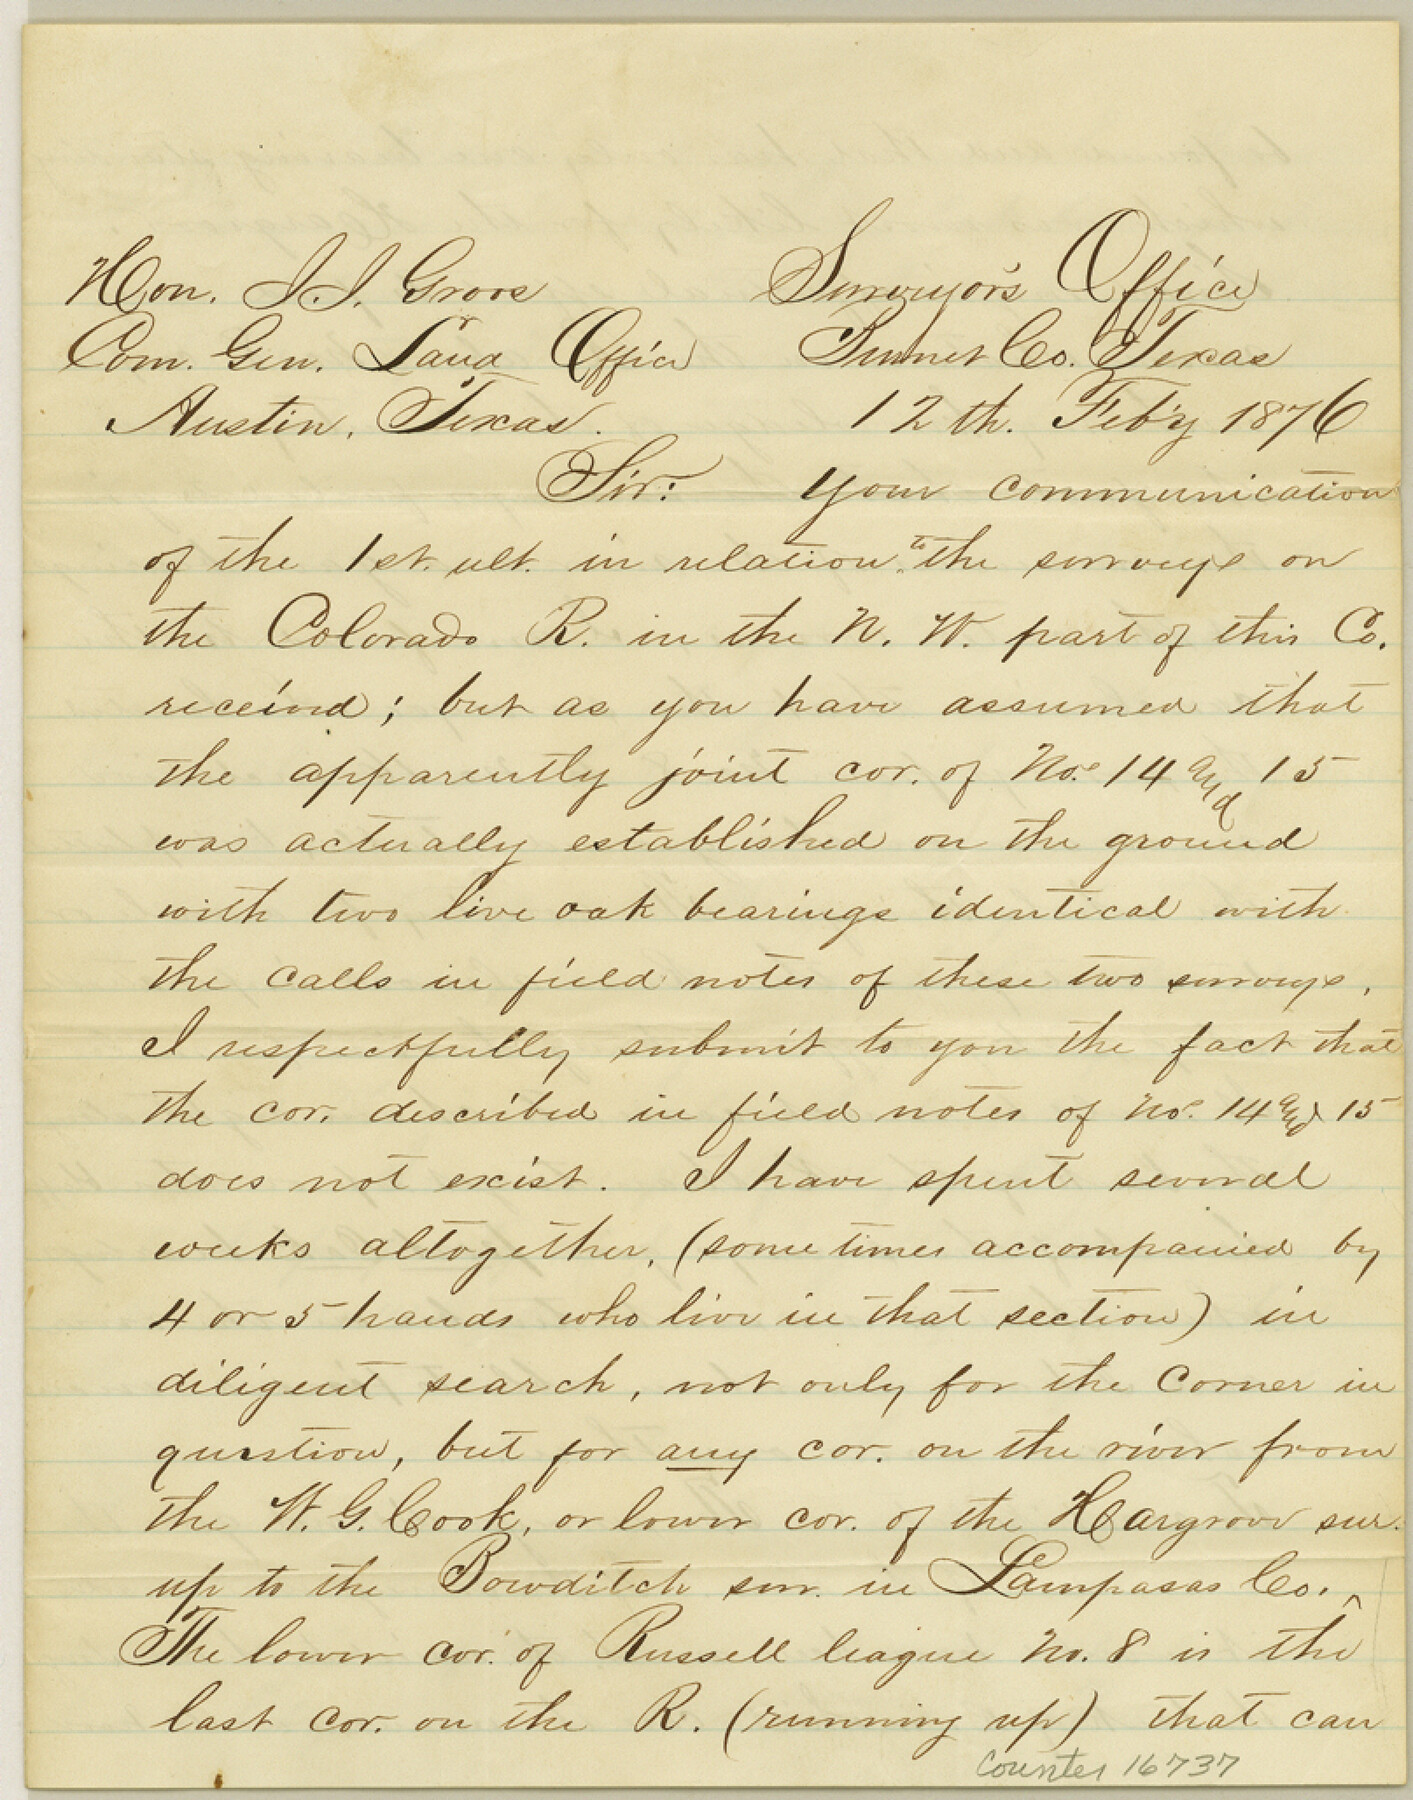 Hon. J. J. Groos
Surveyor's Office
Com. Gen. Land Office
Burnet Co. Texas
Austin, Texas.
12th. Feb'y 1876
Sir: Your communication
of the 1st. ult. in relation to the surveys on
the Colorado R. in the N. W. part of this Co.
received; but as you have assumed that
the apparently joint cor. of Nos. 14 and 15
was actually established on the ground
with two live oak bearings identical with
the calls in field notes of these two surveys,
I respectfully submit to you the fact that
the cor. described in field notes of Nos. 14 and 15
does not exist. I have spent several
weeks altogether, (some times accompanied by
4 or 5 hands who live in that section) in
diligent search, not only for the Corner in
question, but for any cor. on the river from
the W. G. Cook, or lower cor. of the Hargrove sur.
up to the Bowditch sur. in Lampasas Co.
The lower cor. of Russell league No. 8 is the
last cor. on the R. (running up) that can
Counter 16737